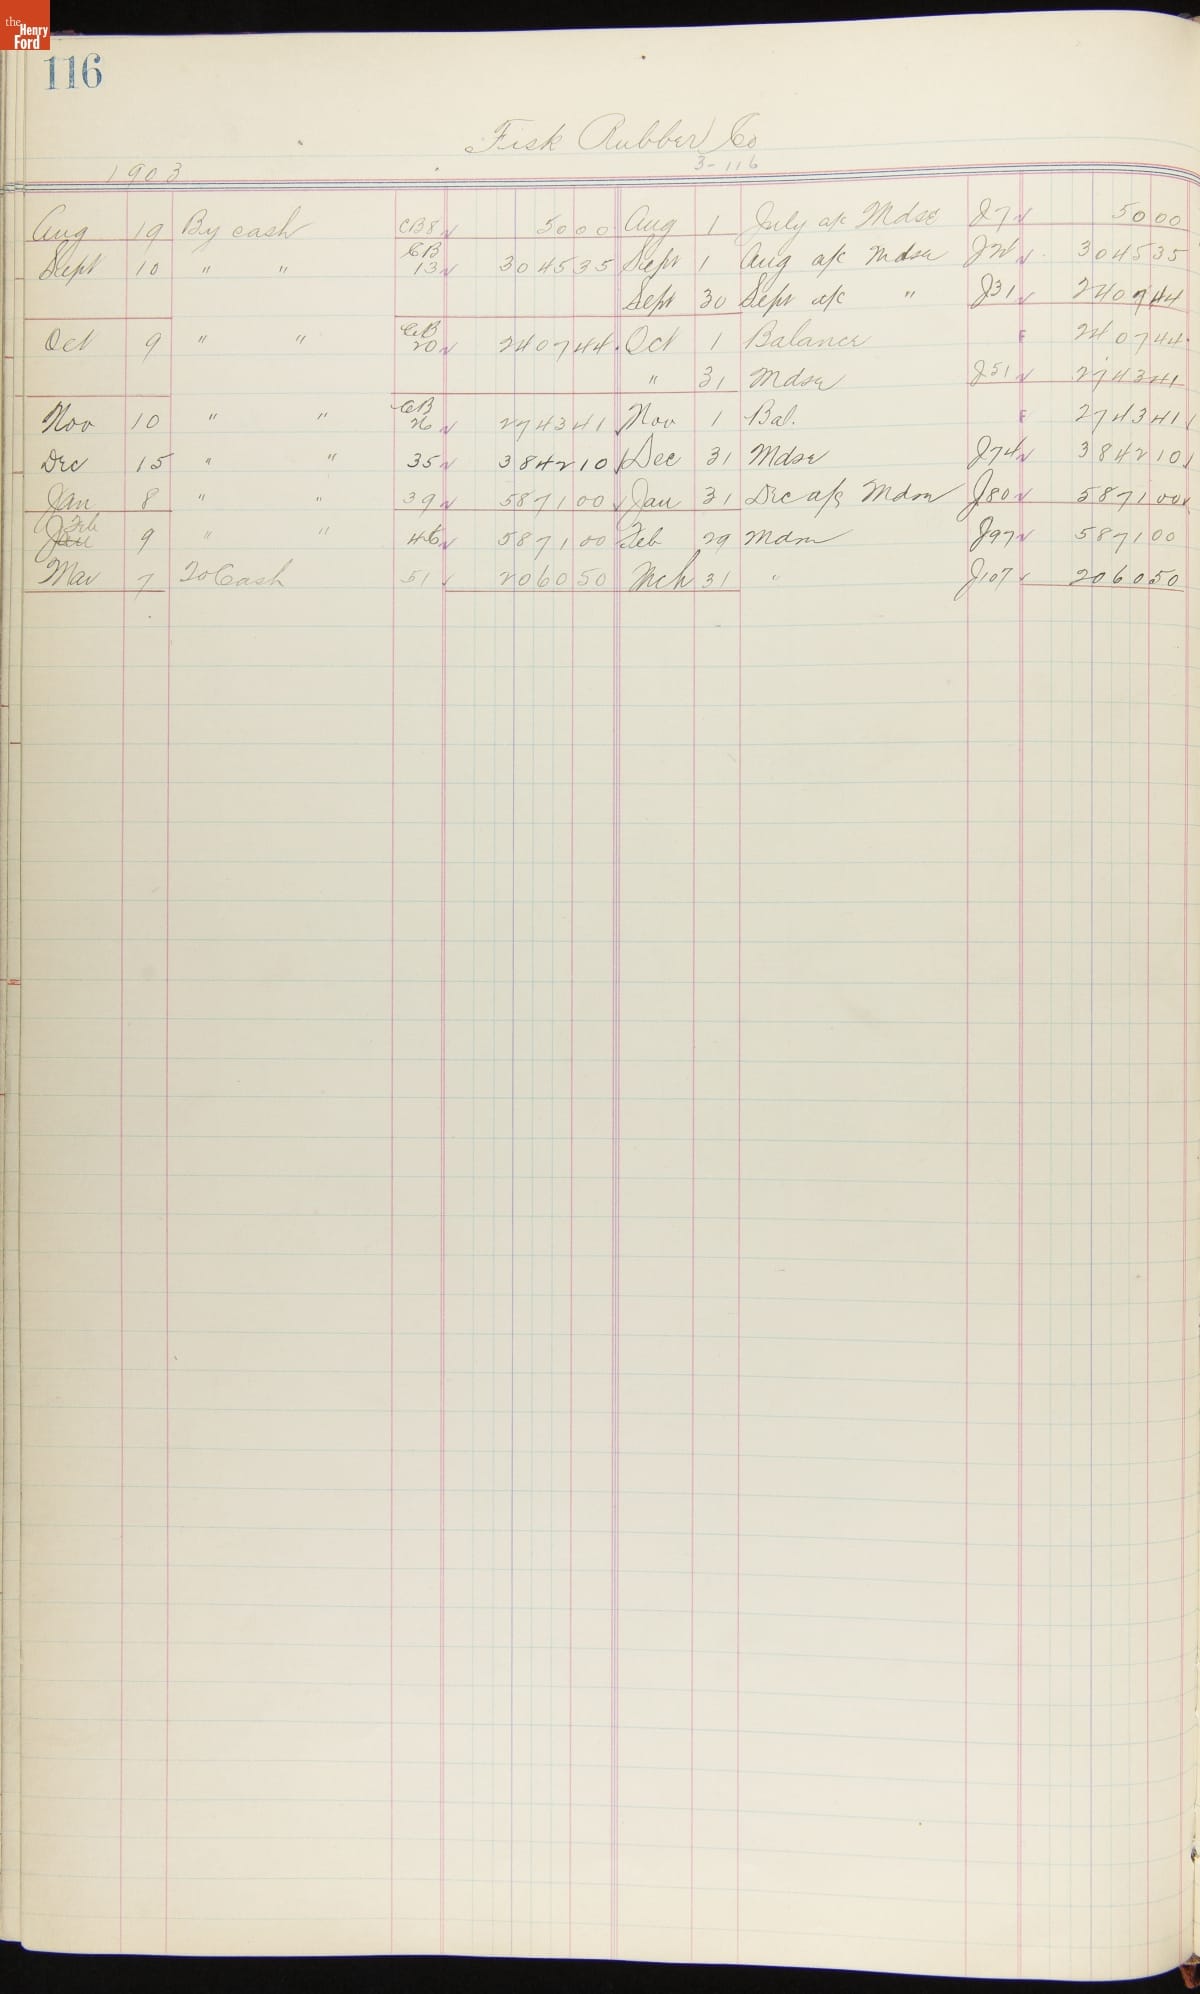 the Henry Ford
116
Fisk Rubber Co
3-116
1903
Aug 19 By cash CB8 ✓ 5000 Aug 1 July a/c Mdse J7 ✓ 5000
Sept 10 " " CB 13 ✓ 304535 Sept 1 Aug a/c Mdse ✓ 304535
Sept 30 Sept a/c " J31 ✓ 240744
Oct 9 " " CB 20 ✓ 240744 Oct 1 Balance F 240744
" 31 Mdse J51 ✓ 274341
Nov 10 " " CB 26 ✓ 274341 Nov 1 Bal. F 274341
Dec 15 " " 35 ✓ 384210 Dec 31 Mdse J74 ✓ 384210
Jan 8 " " 39 ✓ 587100 Jan 31 Dec a/c Mdse J80 ✓ 587100
Feb Jan 9 " " 46 ✓ 587100 Feb 29 Mdse J97 ✓ 587100
Mar 7 To Cash 51 ✓ 206050 Mch 31 " J107 ✓ 206050